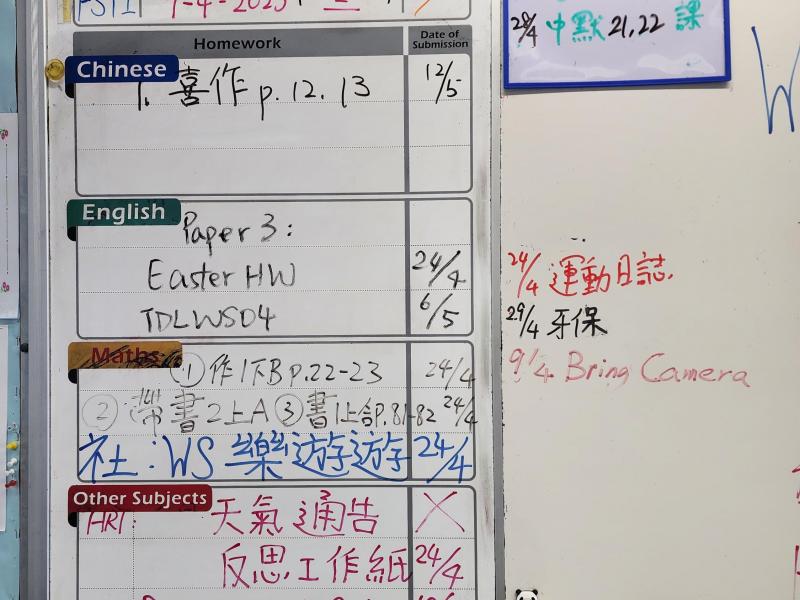 1-4-2025
28/4 中默 21,22 課
Homework
Date of Submission
Chinese
1. 喜作 p.12. 13
12/5
English
Paper 3:
Easter HW
24/4
TDLWS04
6/5
Maths
① 作1下B p.22-23
24/4
② 帶書2上A ③ 書1上部P.81-82
24/4
社: WS 樂遊遊
24/4
Other Subjects
ART:
天氣通告
X
反思工作紙
24/4
24/4 運動日誌.
29/4 牙保
9/4. Bring Camera
W